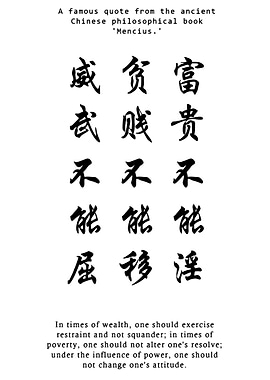 A famous quote from the ancient
Chinese philosophical book
"Mencius."
富贵不能淫
贫贱不能移
威武不能屈
In times of wealth, one should exercise
restraint and not squander; in times of
poverty, one should not alter one's resolve;
under the influence of power, one should
not change one's attitude.